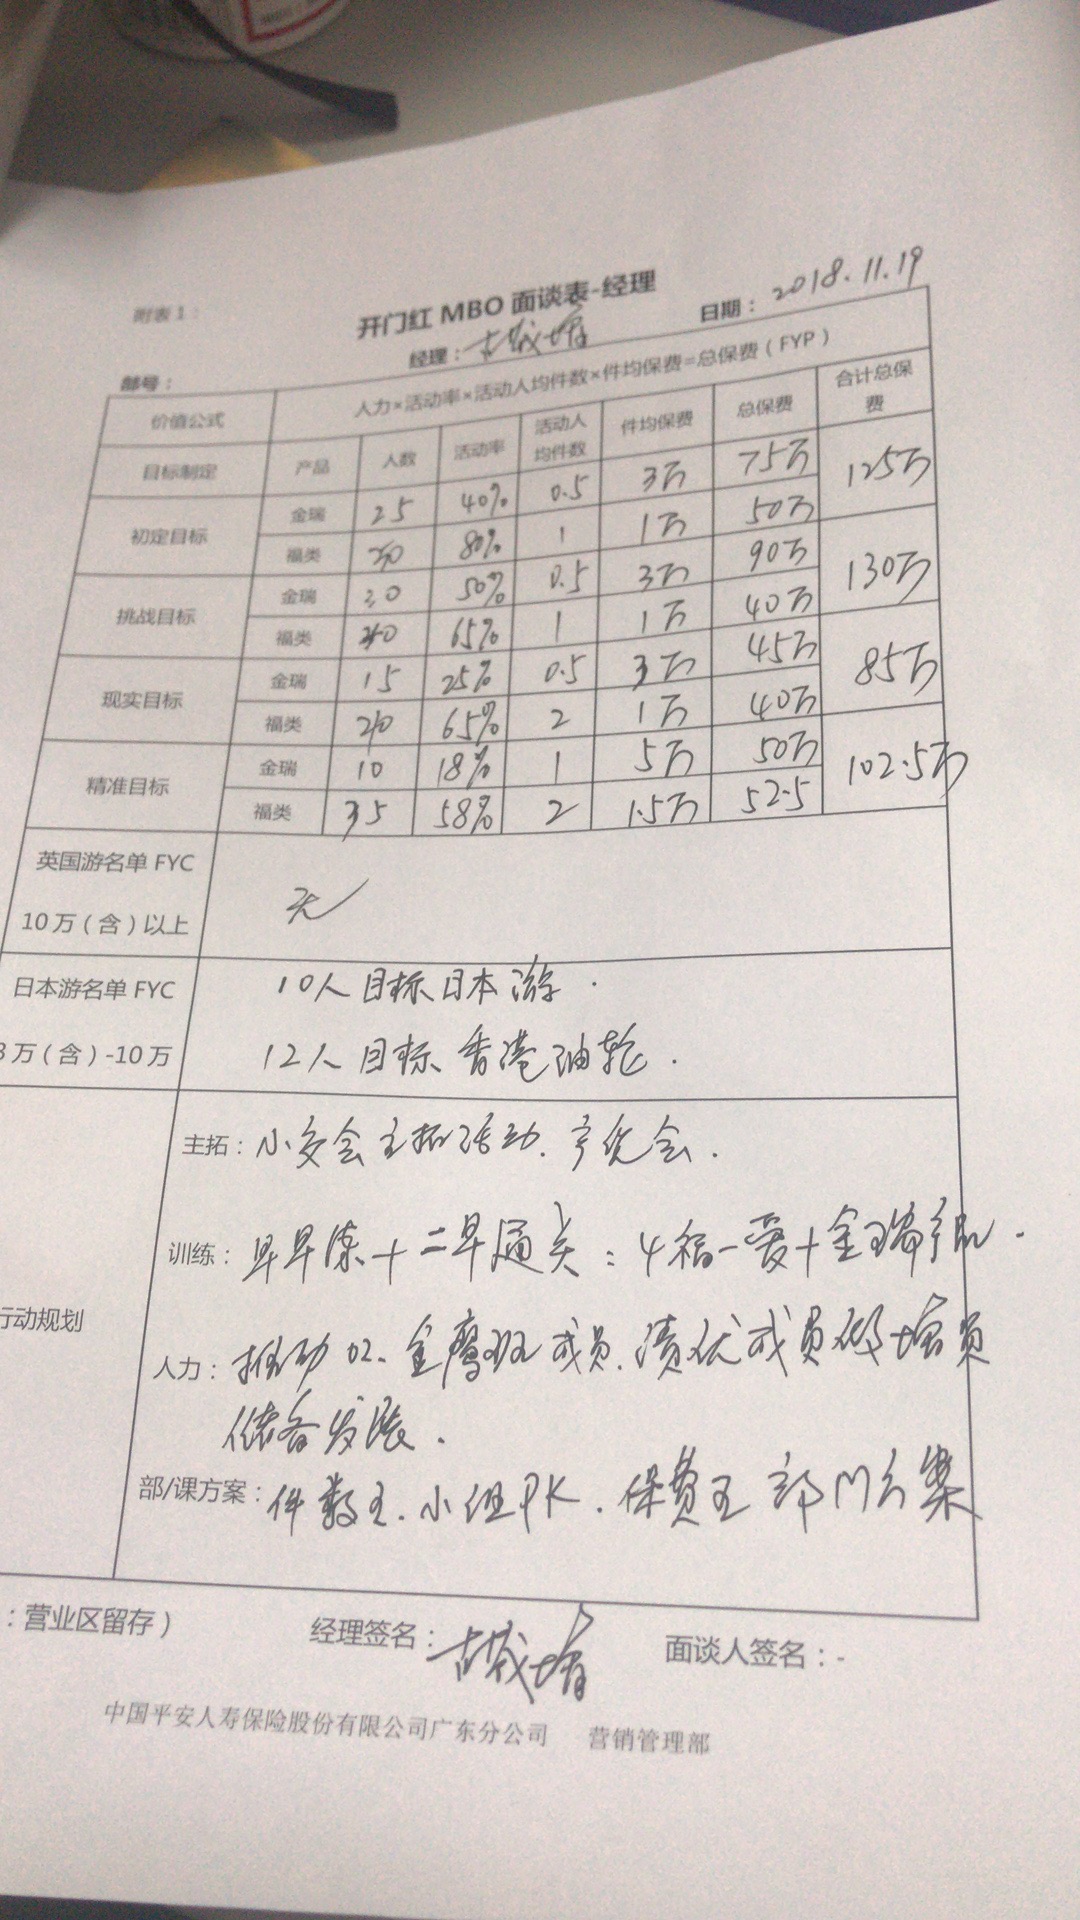 附表1：
开门红 MBO 面谈表-经理
部号： 经理： 日期： 2018.11.19
价值公式 人力×活动率×活动人均件数×件均保费=总保费（FYP） 合计总保费
目标制定 产品 人数 活动率 活动人均件数 件均保费 总保费
初定目标 金瑞 25 40% 0.5 3万 75万 125万
福类 80% 1 1万 50万
挑战目标 金瑞 50% 0.5 3万 90万 130万
福类 65% 1 1万 40万
现实目标 金瑞 15 25% 0.5 3万 45万 85万
福类 20 65% 2 1万 40万
精准目标 金瑞 10 18% 1 5万 50万 102.5万
福类 35 58% 2 1.5万 52.5
英国游名单 FYC
10万（含）以上 无
日本游名单 FYC 10人目标日本游.
3万（含）-10万 12人目标香港油轮.
主拓：小交会主拓活动.产说会.
训练：早早练+二早通关：4福一爱+金瑞
行动规划
人力：推动02.金鹰班成员.绩优成员做增员
储备发展.
部/课方案：件数王.小组PK.保费王 部门方案
：营业区留存） 经理签名： 面谈人签名：-
中国平安人寿保险股份有限公司广东分公司 营销管理部